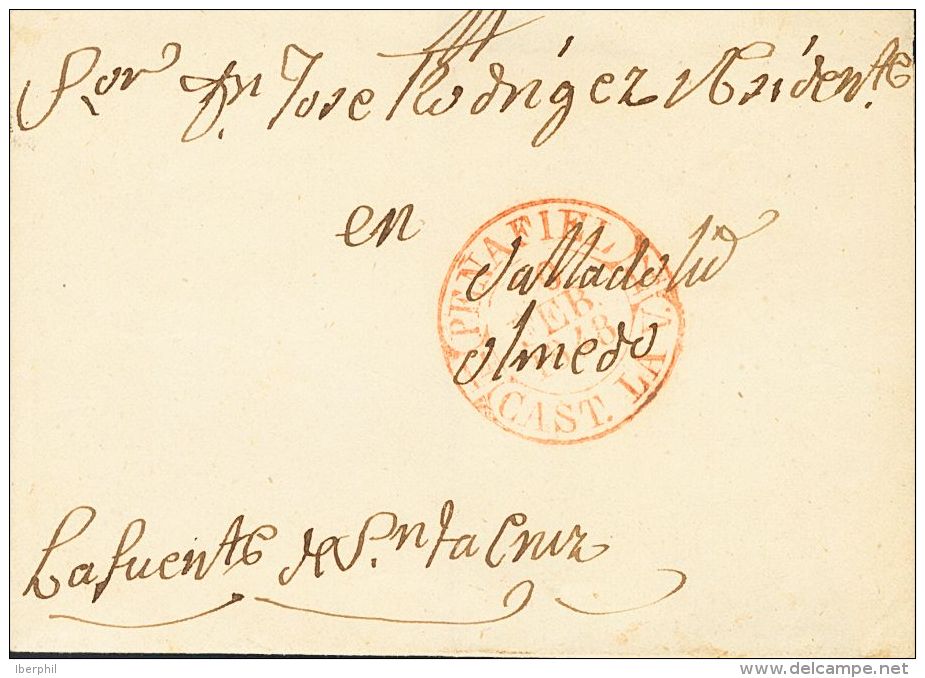 Sor. Dn. Jose Rodrigez Residente
en
Valladolid
Olmedo
PEÑAFIEL
FEB
1848
CAST. LA VA
Lafuente de Santa Cruz
Iberphil
www.delcampe.net